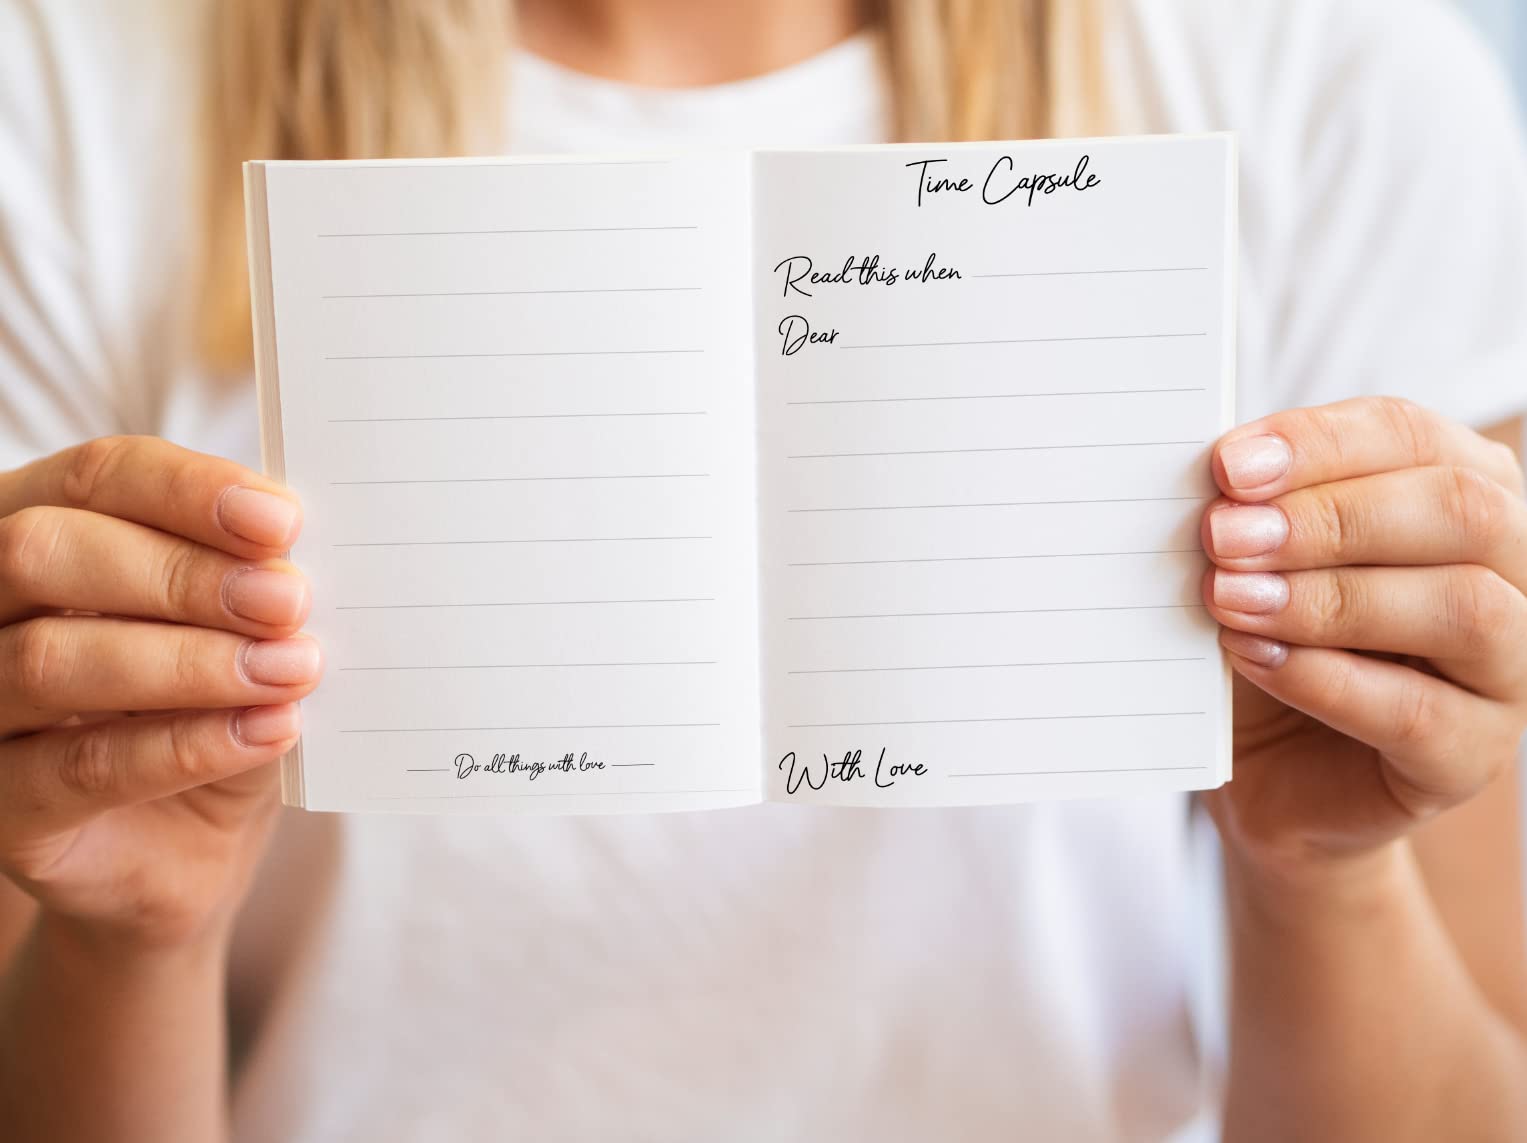 Do all things with love
Time Capsule
Read this when
Dear
With Love